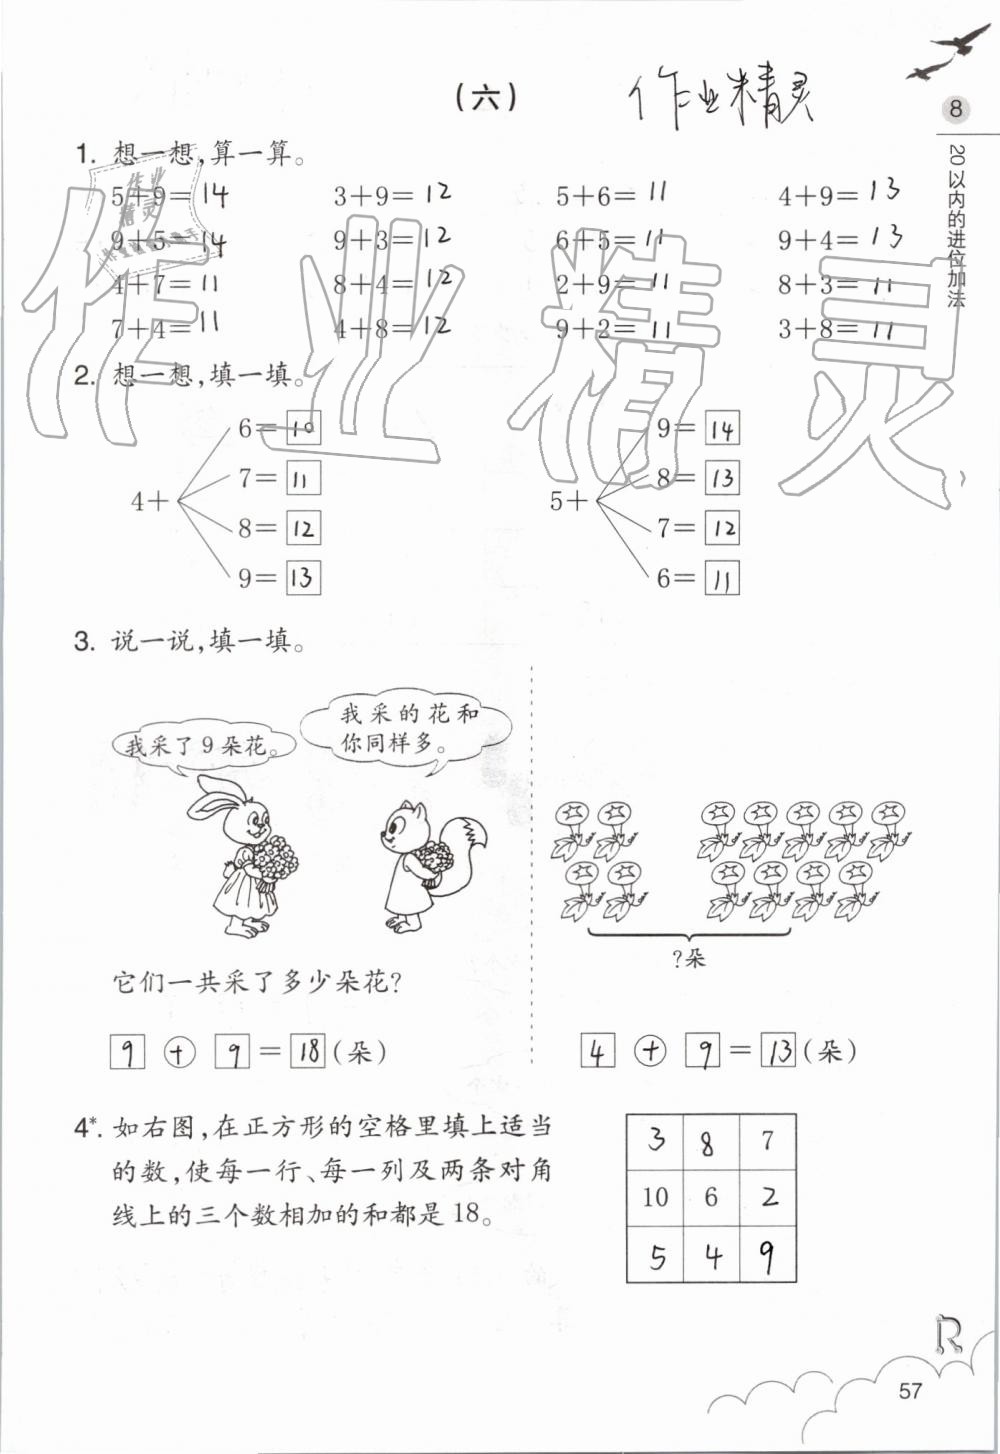 (六)
作业精灵
8
20以内的进位加法
1. 想一想,算一算。
5+9=14 3+9=12 5+6=11 4+9=13
9+5=14 9+3=12 6+5=11 9+4=13
4+7=11 8+4=12 2+9=11 8+3=11
7+4=11 4+8=12 9+2=11 3+8=11
作业精灵
2. 想一想,填一填。
4+
6=10
7=11
8=12
9=13
5+
9=14
8=13
7=12
6=11
3. 说一说,填一填。
我采了9朵花。
我采的花和
你同样多。
它们一共采了多少朵花?
9+9=18(朵)
?朵
4+9=13(朵)
4*. 如右图,在正方形的空格里填上适当
的数,使每一行、每一列及两条对角
线上的三个数相加的和都是18。
3 8 7
10 6 2
5 4 9
R
57